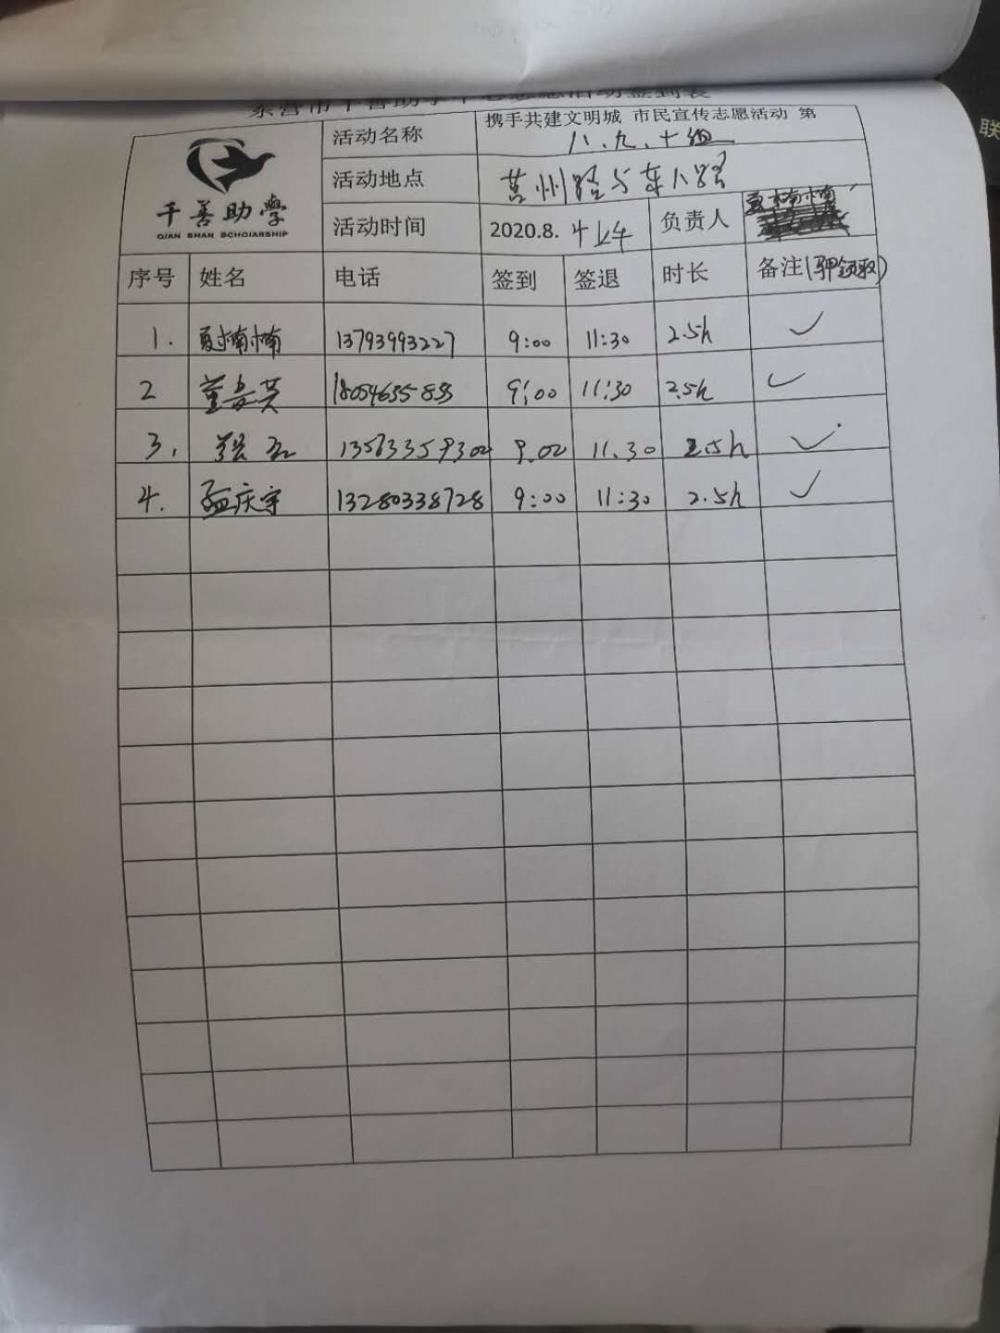 东营市千善助学中心志愿活动签到表
千善助学
QIAN SHAN SCHOLARSHIP
活动名称 携手共建文明城 市民宣传志愿活动 第
八、九、十组
活动地点 莒州路与东八路
活动时间 2020.8. 4上午 负责人 夏楠楠
序号 姓名 电话 签到 签退 时长 备注(领取)
1. 夏楠楠 13793993227 9:00 11:30 2.5h ✓
2 董 英 18054635833 9:00 11:30 2.5h ✓
3. 13563359302 9.00 11.30 2.5h ✓
4. 孟庆宇 13280338728 9:00 11:30 2.5h ✓
联